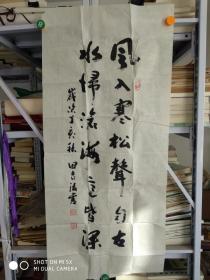 風入寒松聲自古
水歸滄海意皆深
歲次丁亥秋 田
SHOT ON MI 5X
MI DUAL CAMERA